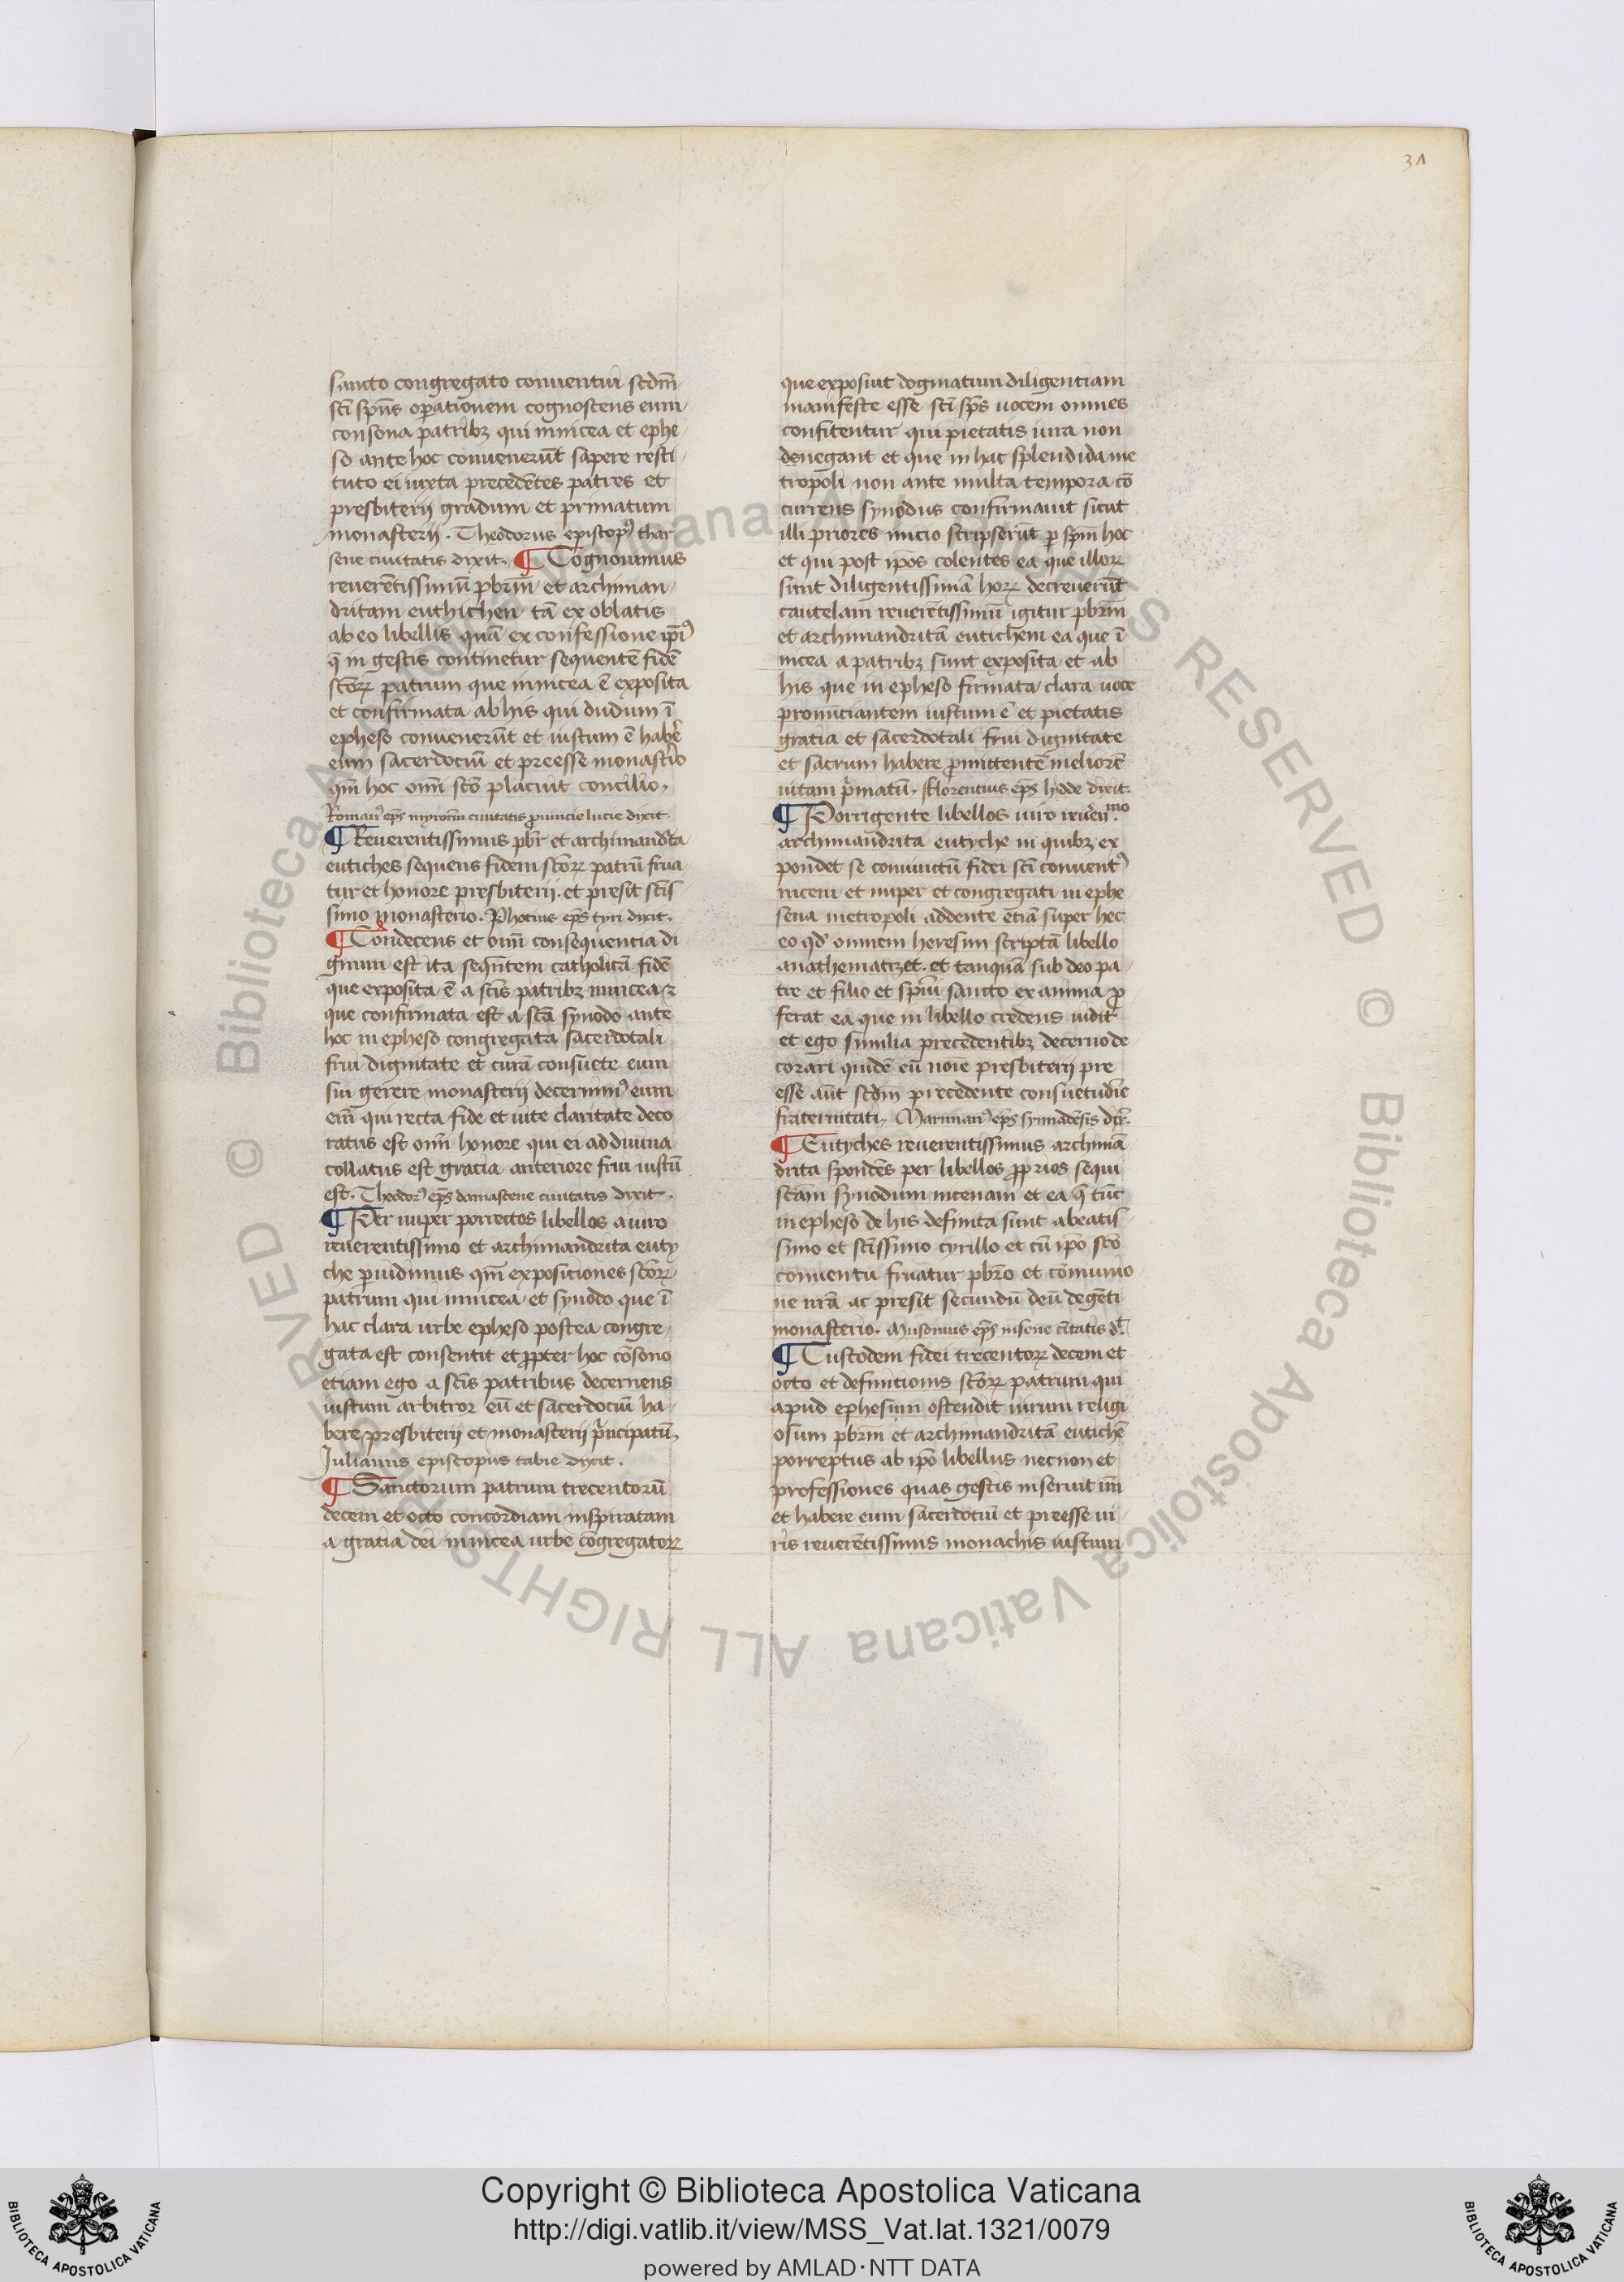 31
sancto congregato conuentui scdm̄
sc̄i sp̄us op̄ationem cognoscens eum
consona patribꝫ qui in nicea et ephe
so ante hoc conuenerūt sapere resti
tuto ei iuxta precedētes patres et
presbiterij gradum et primatum
monasterij. Theodorus episcopꝰ thar
sene ciuitatis dixit. ¶ Cognouimus
reuerētissimū pb̄rm et archiman
dritam euthichen tā ex oblatis
ab eo libellis quā ex confessione ip̄iꝰ
q̄ in gestis continetur sequentē fidē
sc̄orꝝ patrum que in nicea ē exposita
et confirmata ab his qui dudum ī
epheso conuenerūt et iustum ē habe᷒
eum sacerdociū et preesse monast᷒io
qm̄ hoc om̄i sc̄o placuit concilio.
Romanꝰ ep̄s myrorūm ciuitatis prouincie lucie dixit
¶ Reuerentissimus pb̄r et archimand᷒ta
eutiches sequens fidem sc̄orꝝ patrū frua
tur et honore presbiterij. et presit sc̄is
simo monasterio. Photius ep̄s tyri dixit.
¶ Condecens et om̄i consequentia di
gnum est ita seqn̄tem catholicā fidē
que exposita ē a sc̄is patribꝫ in nicea ⁊
que confirmata est a sc̄a synodo ante
hoc in epheso congregata sacerdotali
frui dignitate et curā consuete eum
sui gerere monasterij decernimꝰ eum
em̄ qui recta fide et uite claritate deco
ratus est om̄i honore qui ei ad diuina
collatus est gratia anteriore frui iustū
est. Theodorꝰ ep̄s damascene ciuitatis dixit.
¶ Per nuper porrectos libellos a uiro
reuerentissimo et archimandrita euty
che p̄uidimus qm̄ expositiones sc̄orꝝ
patrum qui in nicea et synodo que ī
hac clara urbe epheso postea congre
gata est consentit et ꝓpter hoc cōsono
etiam ego a sc̄is patribus decernens
iustum arbitror eū et sacerdociū ha
bere presbiterij et monasterij p᷒ncipatū.
Iulianus episcopus tabie dixit.
¶ Sanctorum patrum trecentorū
decem et octo concordiam inspiratam
a gratia dei in nicea urbe cōgregatorꝝ
que exposuit dogmatum diligentiam
manifeste esse sc̄i sp̄s uocem omnes
confitentur qui pietatis iura non
denegant et que in hac splendida me
tropoli non ante multa tempora cō
currens synodus confirmauit sicut
illi priores inicio scripserūt p sp̄m hoc
et qui post ip̄os colentes ea que illorꝝ
sunt diligentissimā horꝝ decreuerūt
cautelam reuerētissimū igitur pb̄rm
et archimandritā eutichem ea que ī
nicea a patribꝫ sunt exposita et ab
his que in epheso firmata clara uoce
pronūciantem iustum ē et pietatis
gratia et sacerdotali frui dignitate
et sacrum habere promittentē meliorē
uitam p᷒matū. Florentius ep̄s lydde dixit.
¶ Porrigente libellos uiro reuerenᵐᵒ
archimandrita eutyche in quibꝫ ex
pondet se coniunctū fidei sc̄i conuentꝰ
niceni et nuper et congregati in ephe
sena metropoli addente etiā super hec
eo qd̄ omnem heresim scriptā libello
anathematizet. et tanquā sub deo pa
tre et filio et sp̄u sancto ex anima ꝓ
ferat ea que in libello credens indit᷒
et ego similia precedentibꝫ decerno de
corari quidē eū noīe presbiterij pre
esse aūt scdm̄ precedente consuetudīe
fraternitati. Marinianꝰ ep̄s synnadēsis dix̄.
¶ Eutyches reuerentissimus archimā
drita spondēs per libellos ꝓprios sequi
sc̄am synodum nicenam et ea q̄ tūc
in epheso de his definita sunt a beatis
simo et sc̄issimo cyrillo et cū ip̄o sc̄o
conuentu fruatur pb̄ro et cōmunio
ne nr̄a ac presit secundū deū degēti
monasterio. Musonius ep̄s nisene cītatis d̄t.
¶ Custodem fidei trecentorꝝ decem et
octo et definitionis sc̄orꝝ patrum qui
apud ephesum ostendit uirum religi
osum pb̄rm et archimandritā eutichē
porreptus ab ip̄o libellus necnon et
professiones quas gestis inseruit un̄
et habere eum sacerdotiū et preesse ui
ris reuerētissimis monachis iustum
Copyright © Biblioteca Apostolica Vaticana
http://digi.vatlib.it/view/MSS_Vat.lat.1321/0079
powered by AMLAD·NTT DATA